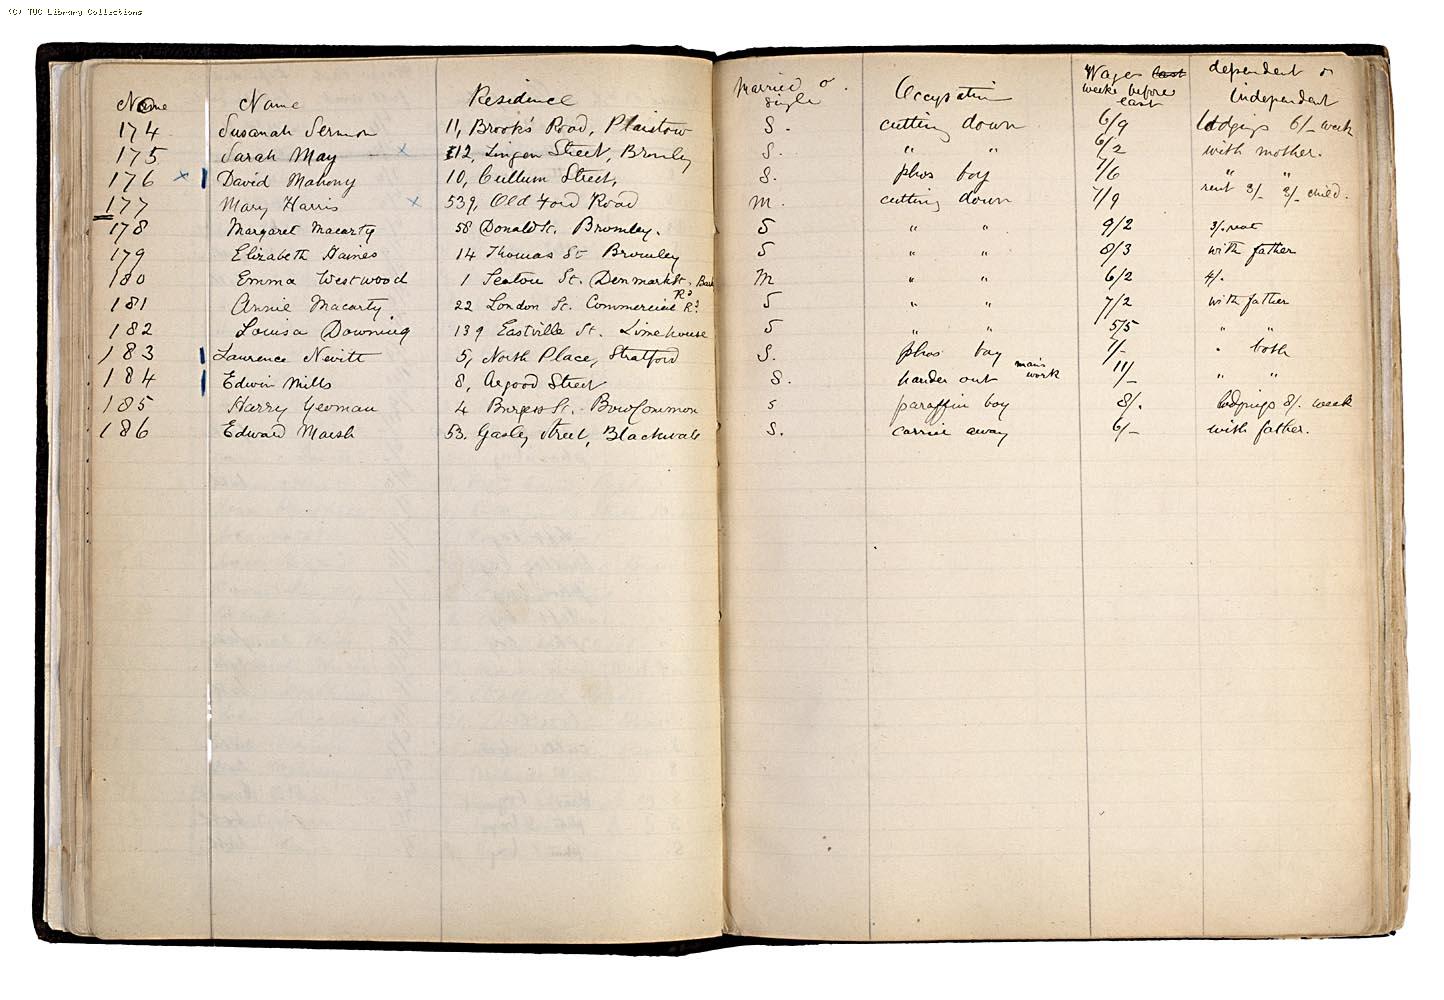 (C) TUC Library Collections
No Name Residence Married or single Occupation Wages last weeks before last dependent or Independent
174 Susanah Sermon 11, Brook's Road, Plaistow S. cutting down 6/9 lodgings 6/- week
175 Sarah May x 12, Lingen Street, Bromley S. " " 6/2 with mother.
176 x David Mahony 10, Cullum Street, S. phos boy 7/6 " "
177 Mary Harris x 539, Old Ford Road M. cutting down 7/9 rent 3/- 3/- child.
178 Margaret Macarty 58 Donald St. Bromley. S " " 9/2 3/. rent
179 Elizabeth Haines 14 Thomas St Bromley S " " 8/3 with father
180 Emma Westwood 1 Seaton St. Denmark St. M " " 6/2 4/.
181 Annie Macarty 22 London St. Commercial Rd. S " " 7/2 with father
182 Louisa Downing 139 Eastville St. Limehouse S " " 5/5 " "
183 Laurence Nevitt 5, North Place, Stratford S. phos boy 11/- " both
184 Edwin Mills 8, Argood Street S. hander out man's work 11/- " "
185 Harry Yeoman 4 Burgess St. Bow Common s paraffin boy 8/. lodgings 8/. week
186 Edward Marsh 53. Street, Blackwall S. carrier away 6/- with father.